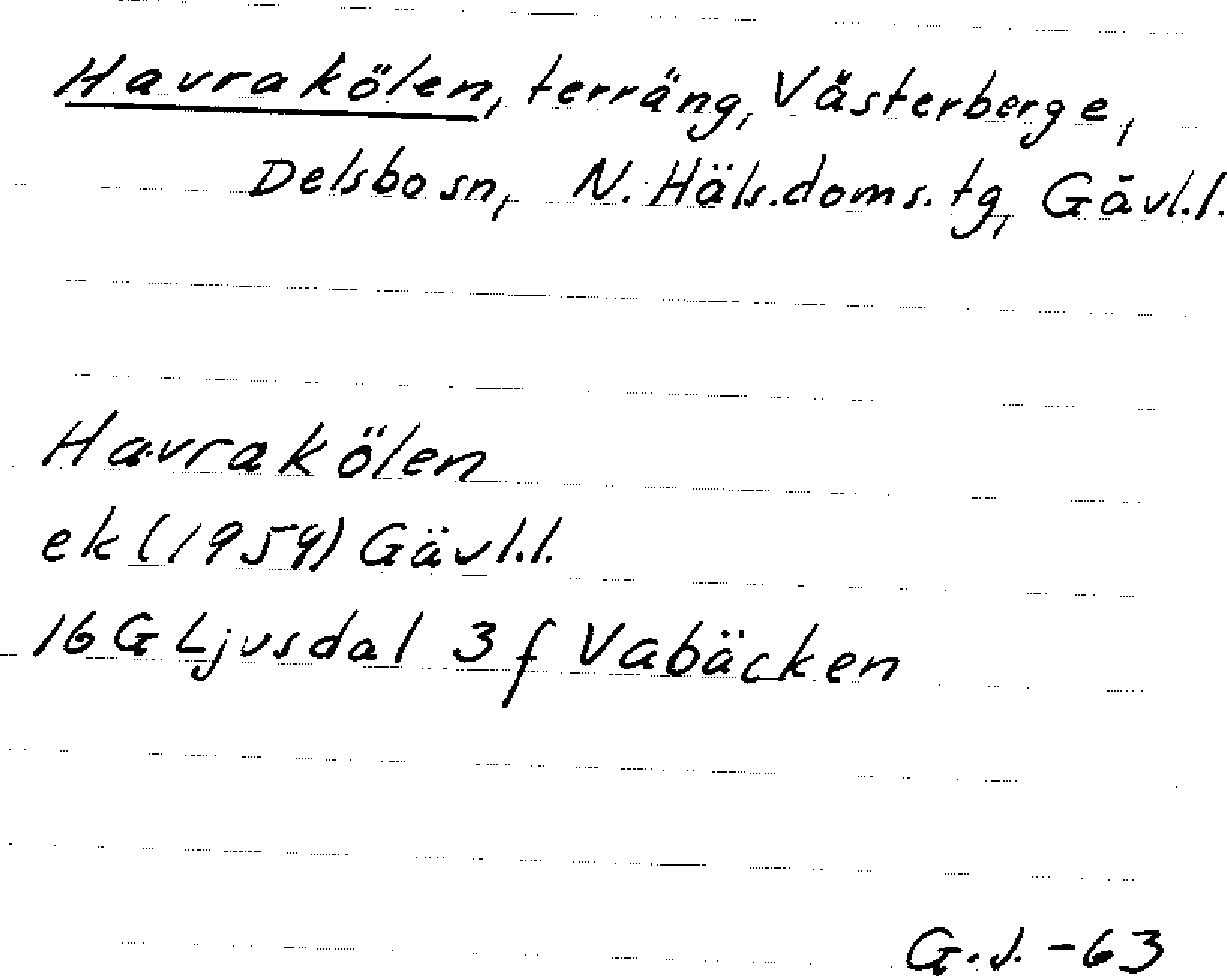 Havrakölen, terräng, Västerberge,
Delsbo sn, N. Häls.doms.tg, Gävl.l.
Havrakölen
ek (1959) Gävl.l.
16 G Ljusdal 3 f Vabäcken
G.J. -63